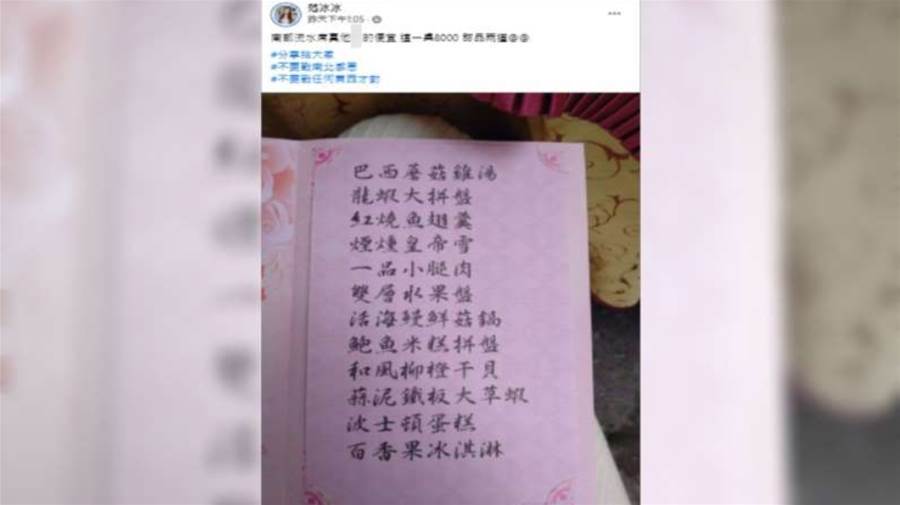 范冰冰
昨天下午1:05
南部流水席真他 的便宜 這一桌8000 甜品兩道
#分享給大家
#不要戰南北感恩
#不要戰任何東西才對
巴西蘑菇雞湯
龍蝦大拼盤
紅燒魚翅羹
煙燻皇帝雪
一品小腿肉
雙層水果盤
活海鰻鮮菇鍋
鮑魚米糕拼盤
和風柳橙干貝
蒜泥鐵板大草蝦
波士頓蛋糕
百香果冰淇淋